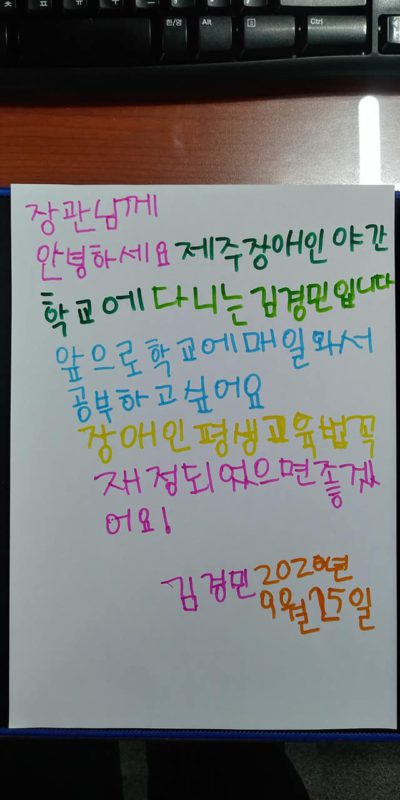 한/영
Alt
Ctrl
장관님께
안녕하세요 제주장애인 야간
학교에 다니는 김경민입니다
앞으로 학교에 매일 와서
공부하고 싶어요
장애인평생교육법 꼭
재정되었으면 좋겠
어요!
김경민 2020년
9월 25일